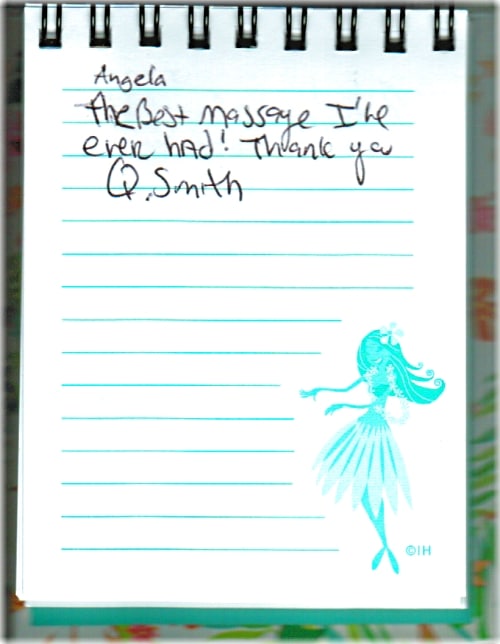 Angela
The Best massage I've
ever had! Thank you
Q. Smith
©IH